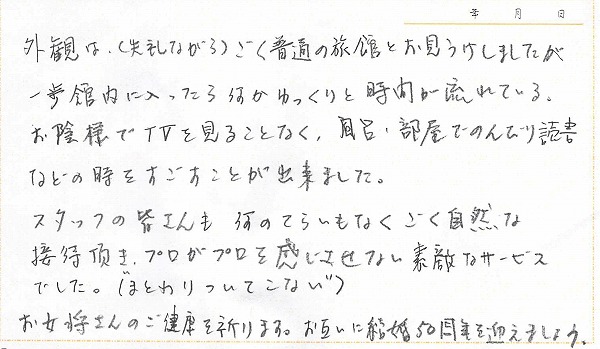 年 月 日
外観は、(失礼ながら)ごく普通の旅館とお見うけしましたが
一歩館内に入ったら何かゆっくりと時間が流れている。
お陰様でTVを見ることなく、風呂・部屋でのんびり読書
などの時をすごすことが出来ました。
スタッフの皆さんも 何のてらいもなくごく自然な
接待頂き、プロがプロを感じさせない素敵なサービス
でした。("まとわりついてこない")
お女将さんのご健康を祈ります。お互いに結婚50周年を迎えましょう。